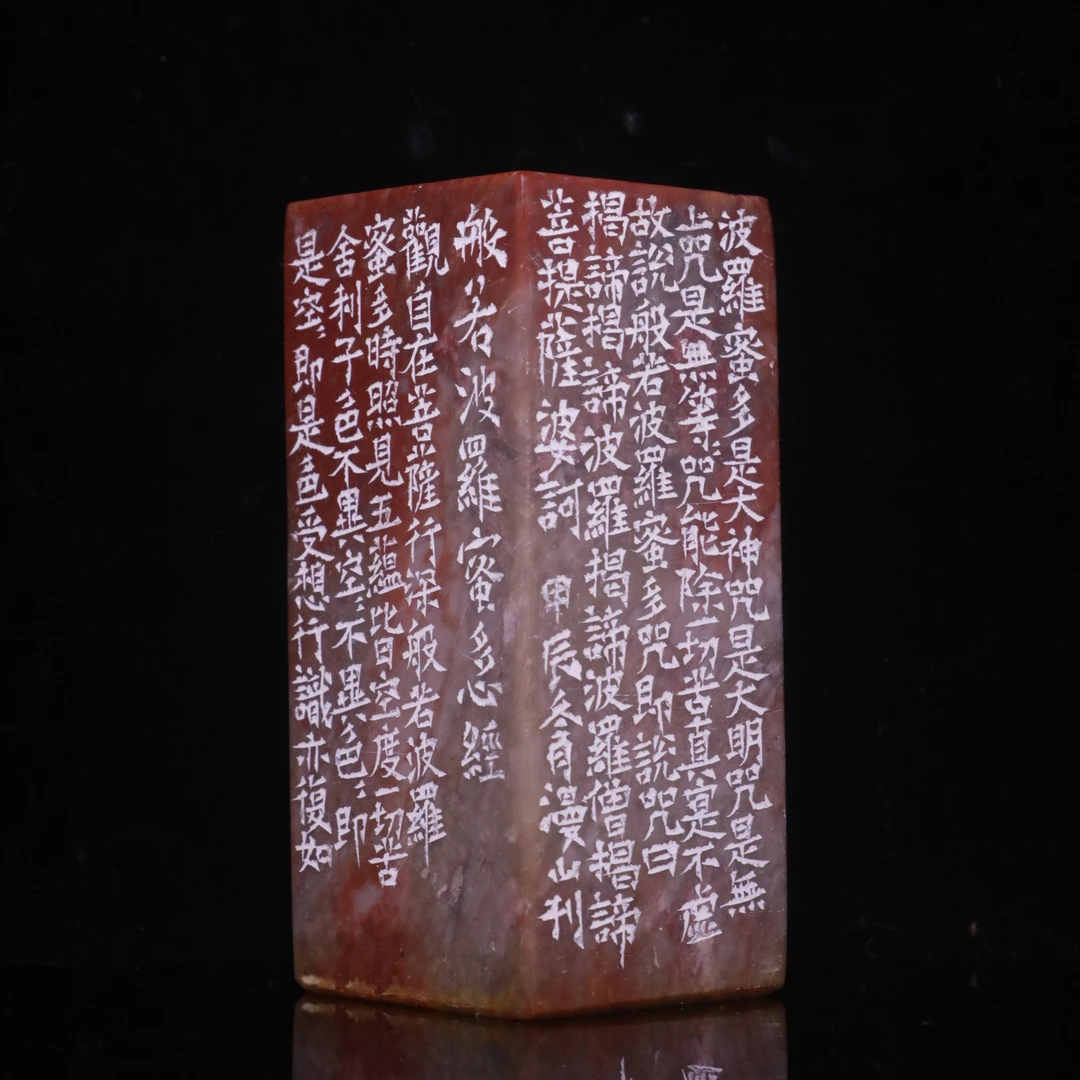 般若波羅蜜多心經
觀自在菩薩行深般若波羅
蜜多時照見五蘊皆空度一切苦
舍利子色不異空〻不異色〻即
是空〻即是色受想行識亦復如
波羅蜜多是大神咒是大明咒是無
上咒是無等〻咒能除一切苦真實不虛
故說般若波羅蜜多咒即說咒曰
揭諦揭諦波羅揭諦波羅僧揭諦
菩提薩婆訶 甲辰冬月漫山利